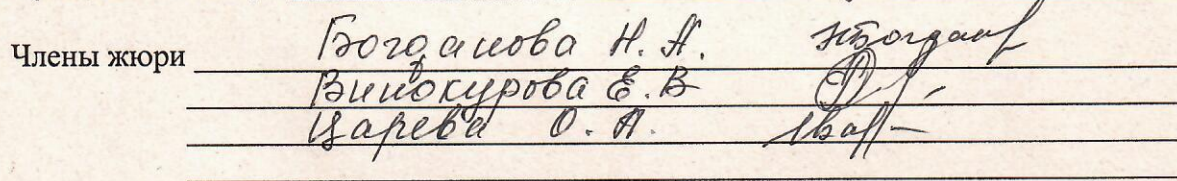 Члены жюри Богданова Н. А.
Винокурова Е. В
Царева О. А.